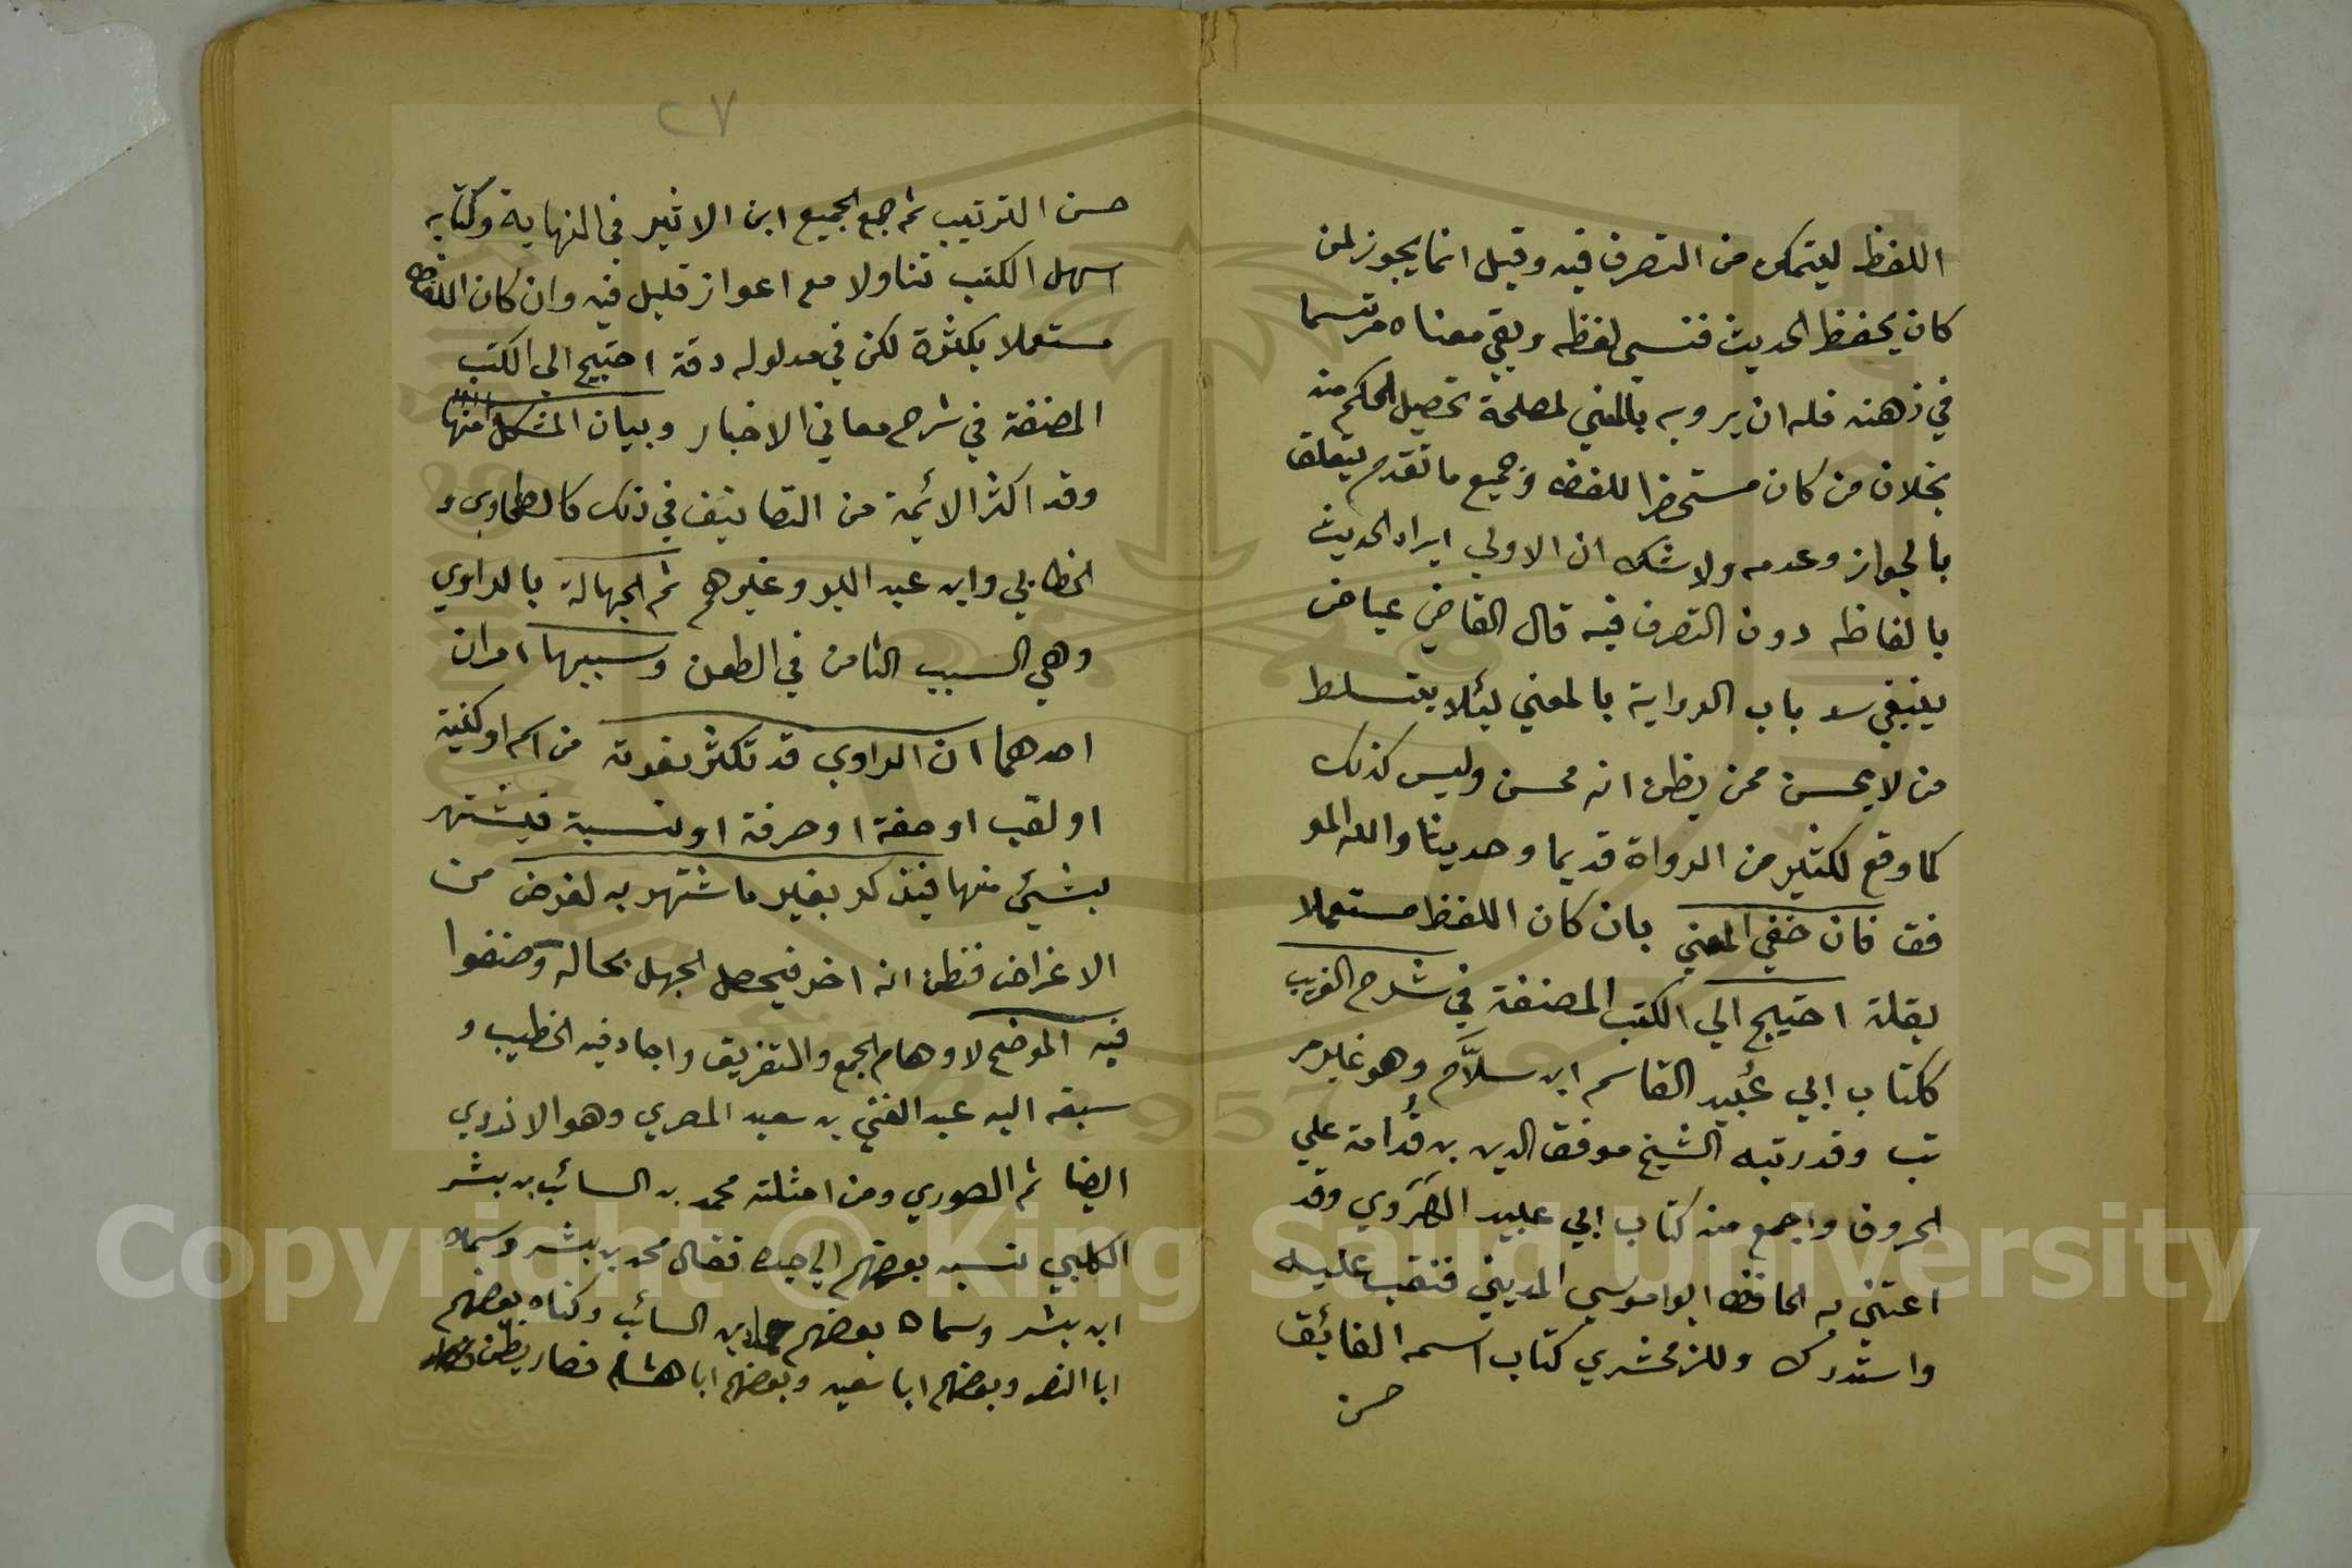 اللفظ ليتمكن من التصرف فيه وقيل انما يجوز لمن
كان يحفظ الحديث فنسي لفظه وبقي معناه مرتسما
في ذهنه فله ان يرويه بالمعني لمصلحة تحصيل الحكم منه
بخلاف من كان مستحضرا للفظه وجميع ما تقدم يتعلق
بالجواز وعدمه ولا شك ان الاولي ايراد الحديث
بالفاظه دون التصرف فيه قال القاضي عياض
ينبغي سد باب الرواية بالمعني ليئلا يتسلط
من لا يحسن ممن يظن انه محسن وليس كذلك
كما وقع لكثير من الرواة قديما وحديثا والله المو
فق فان خفي المعني بان كان اللفظ مستعملا
بقلة احتيج الي الكتب المصنفة في شرح الغريب
ككتاب ابي عُبيد القاسم ابن سلاَّم وهو غير مر
تب وقد رتبه الشيخ موفق الدين بن قُدامة علي
الحروف واجمع منه كتاب ابي عبيد الهَرَوي وقد
اعتني به الحافظ ابوا موسي المديني فنقب عليه
واستدرك وللزمخشري كتاب اسمه الفائق
حسن
٢٧
حسن الترتيب ثم جمع الجميع ابن الاثير في النهاية وكتابه
اسهل الكتب تناولا مع اعواز قليل فيه وان كان اللفظ
مستعملا بكثرة لكن في مدلوله دقة احتيج الي الكتب
المصنفة في شرح معاني الاخبار وبيان المشكل منها
وقد اكثر الائمة من التصانيف في ذلك كالطحاوي و
الخطابي وابن عبد البر وغيرهم ثم الجهالة بالراوي
وهي السبب الثامن في الطعن وسببها امران
احدهما ان الراوي قد تكثر نعوته من اسم او كنية
او لقب او صفة او حرفة او نسبة فيشتهر
بشيئ منها فيذكر بغير ما شتهر به لغرض من
الاغراض فيظن انه اخر فيحصل الجهل بحاله وصنفوا
فيه الموضح لاوهام الجمع والتفريق واجاد فيه الخطيب و
سبقه اليه عبد الغني بن سعيد المصري وهو الازدي
ايضا ثم الصوري ومن امثلته محمد بن السائب بن بشر
الكلبي نسبه بعضهم الي جده فقال محمد بن بشر وسماه
ابن بشر وسماه بعضهم حماد بن السائب وكناه بعضهم
ابا النصر وبعضهم ابا سعيد وبعضهم ابا هشام فصار يظن
Copyright © King Saud University
1957